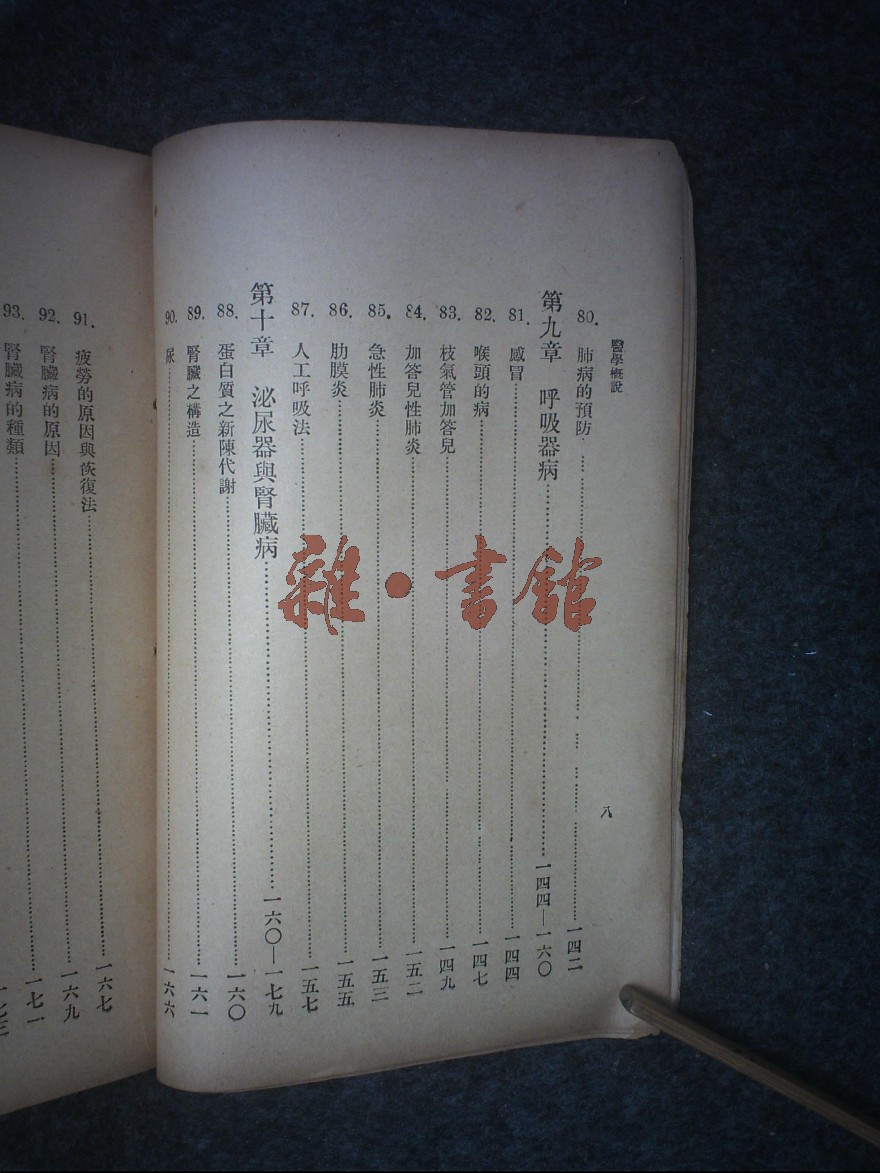 醫學概說
八
80. 肺病的預防 一四二
第九章 呼吸器病 一四四—一六〇
81. 感冒 一四四
82. 喉頭的病 一四七
83. 枝氣管加答兒 一四九
84. 加答兒性肺炎 一五二
85. 急性肺炎 一五三
86. 肋膜炎 一五五
87. 人工呼吸法 一五七
第十章 泌尿器與腎臟病 一六〇—一七九
88. 蛋白質之新陳代謝 一六〇
89. 腎臟之構造 一六一
90. 尿 一六六
91. 疲勞的原因與恢復法 一六七
92. 腎臟病的原因 一六九
93. 腎臟病的種類 一七一
一七三
雜·書館